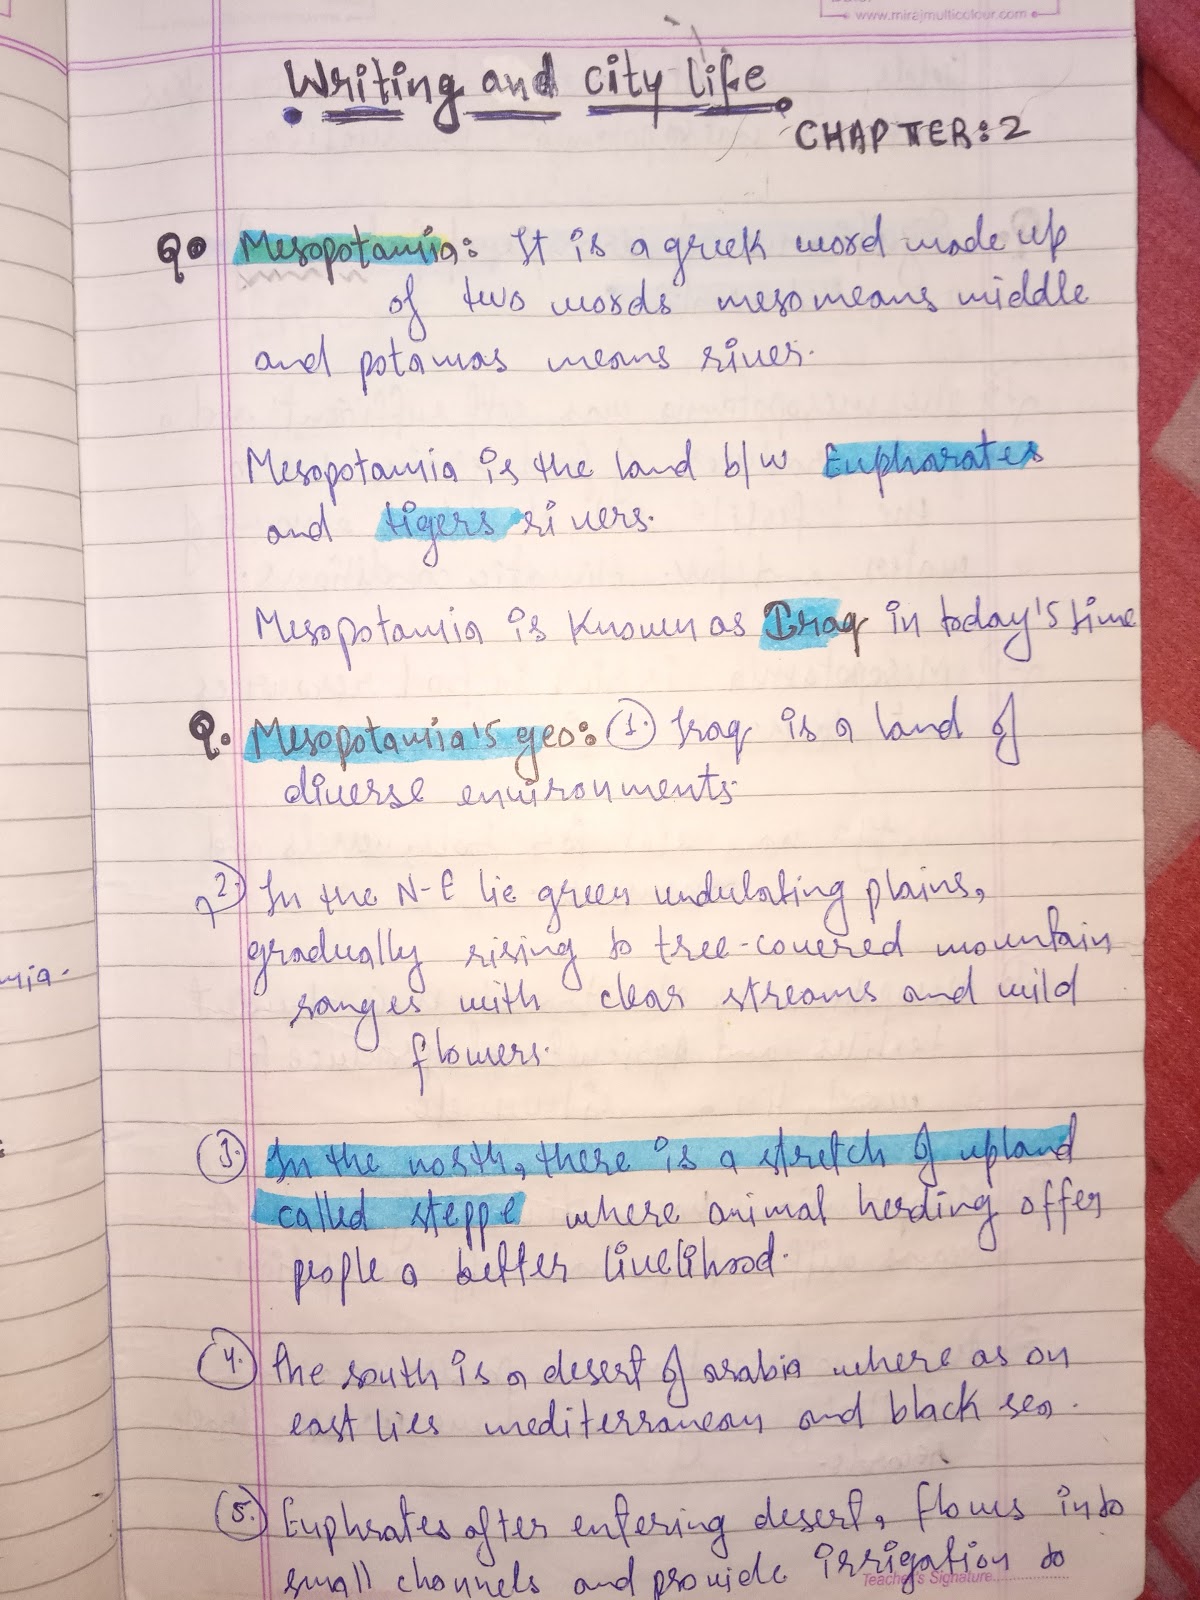 www.mirajmulticolour.com
Writing and city life
CHAPTER: 2
Q. Mesopotamia: It is a greek word made up
of two words meso means middle
and potamas means river.
Mesopotamia is the land b/w Eupharates
and tigers rivers.
Mesopotamia is known as Iraq in today's time
Q. Mesopotamia's geo: 1. Iraq is a land of
diverse environments.
2. In the N-E lie green undulating plains,
gradually rising to tree-covered mountain
ranges with clear streams and wild
flowers.
mia.
3. In the north, there is a stretch of upland
called steppe where animal herding offer
people a better livelihood.
4. The south is a desert of arabia where as on
east lies mediterranean and black sea.
5. Euphrates after entering desert, flows into
small channels and provide irrigation to
Teacher's Signature